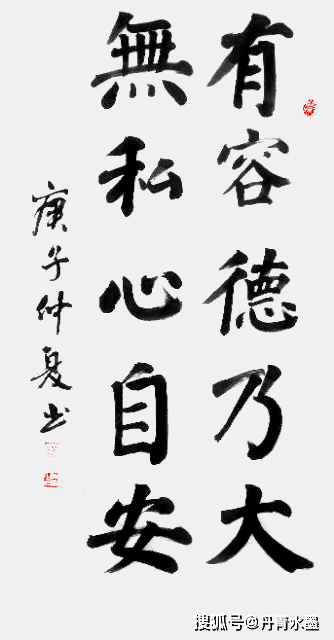 有容德乃大
無私心自安
庚子仲夏书
搜狐号@丹青水墨